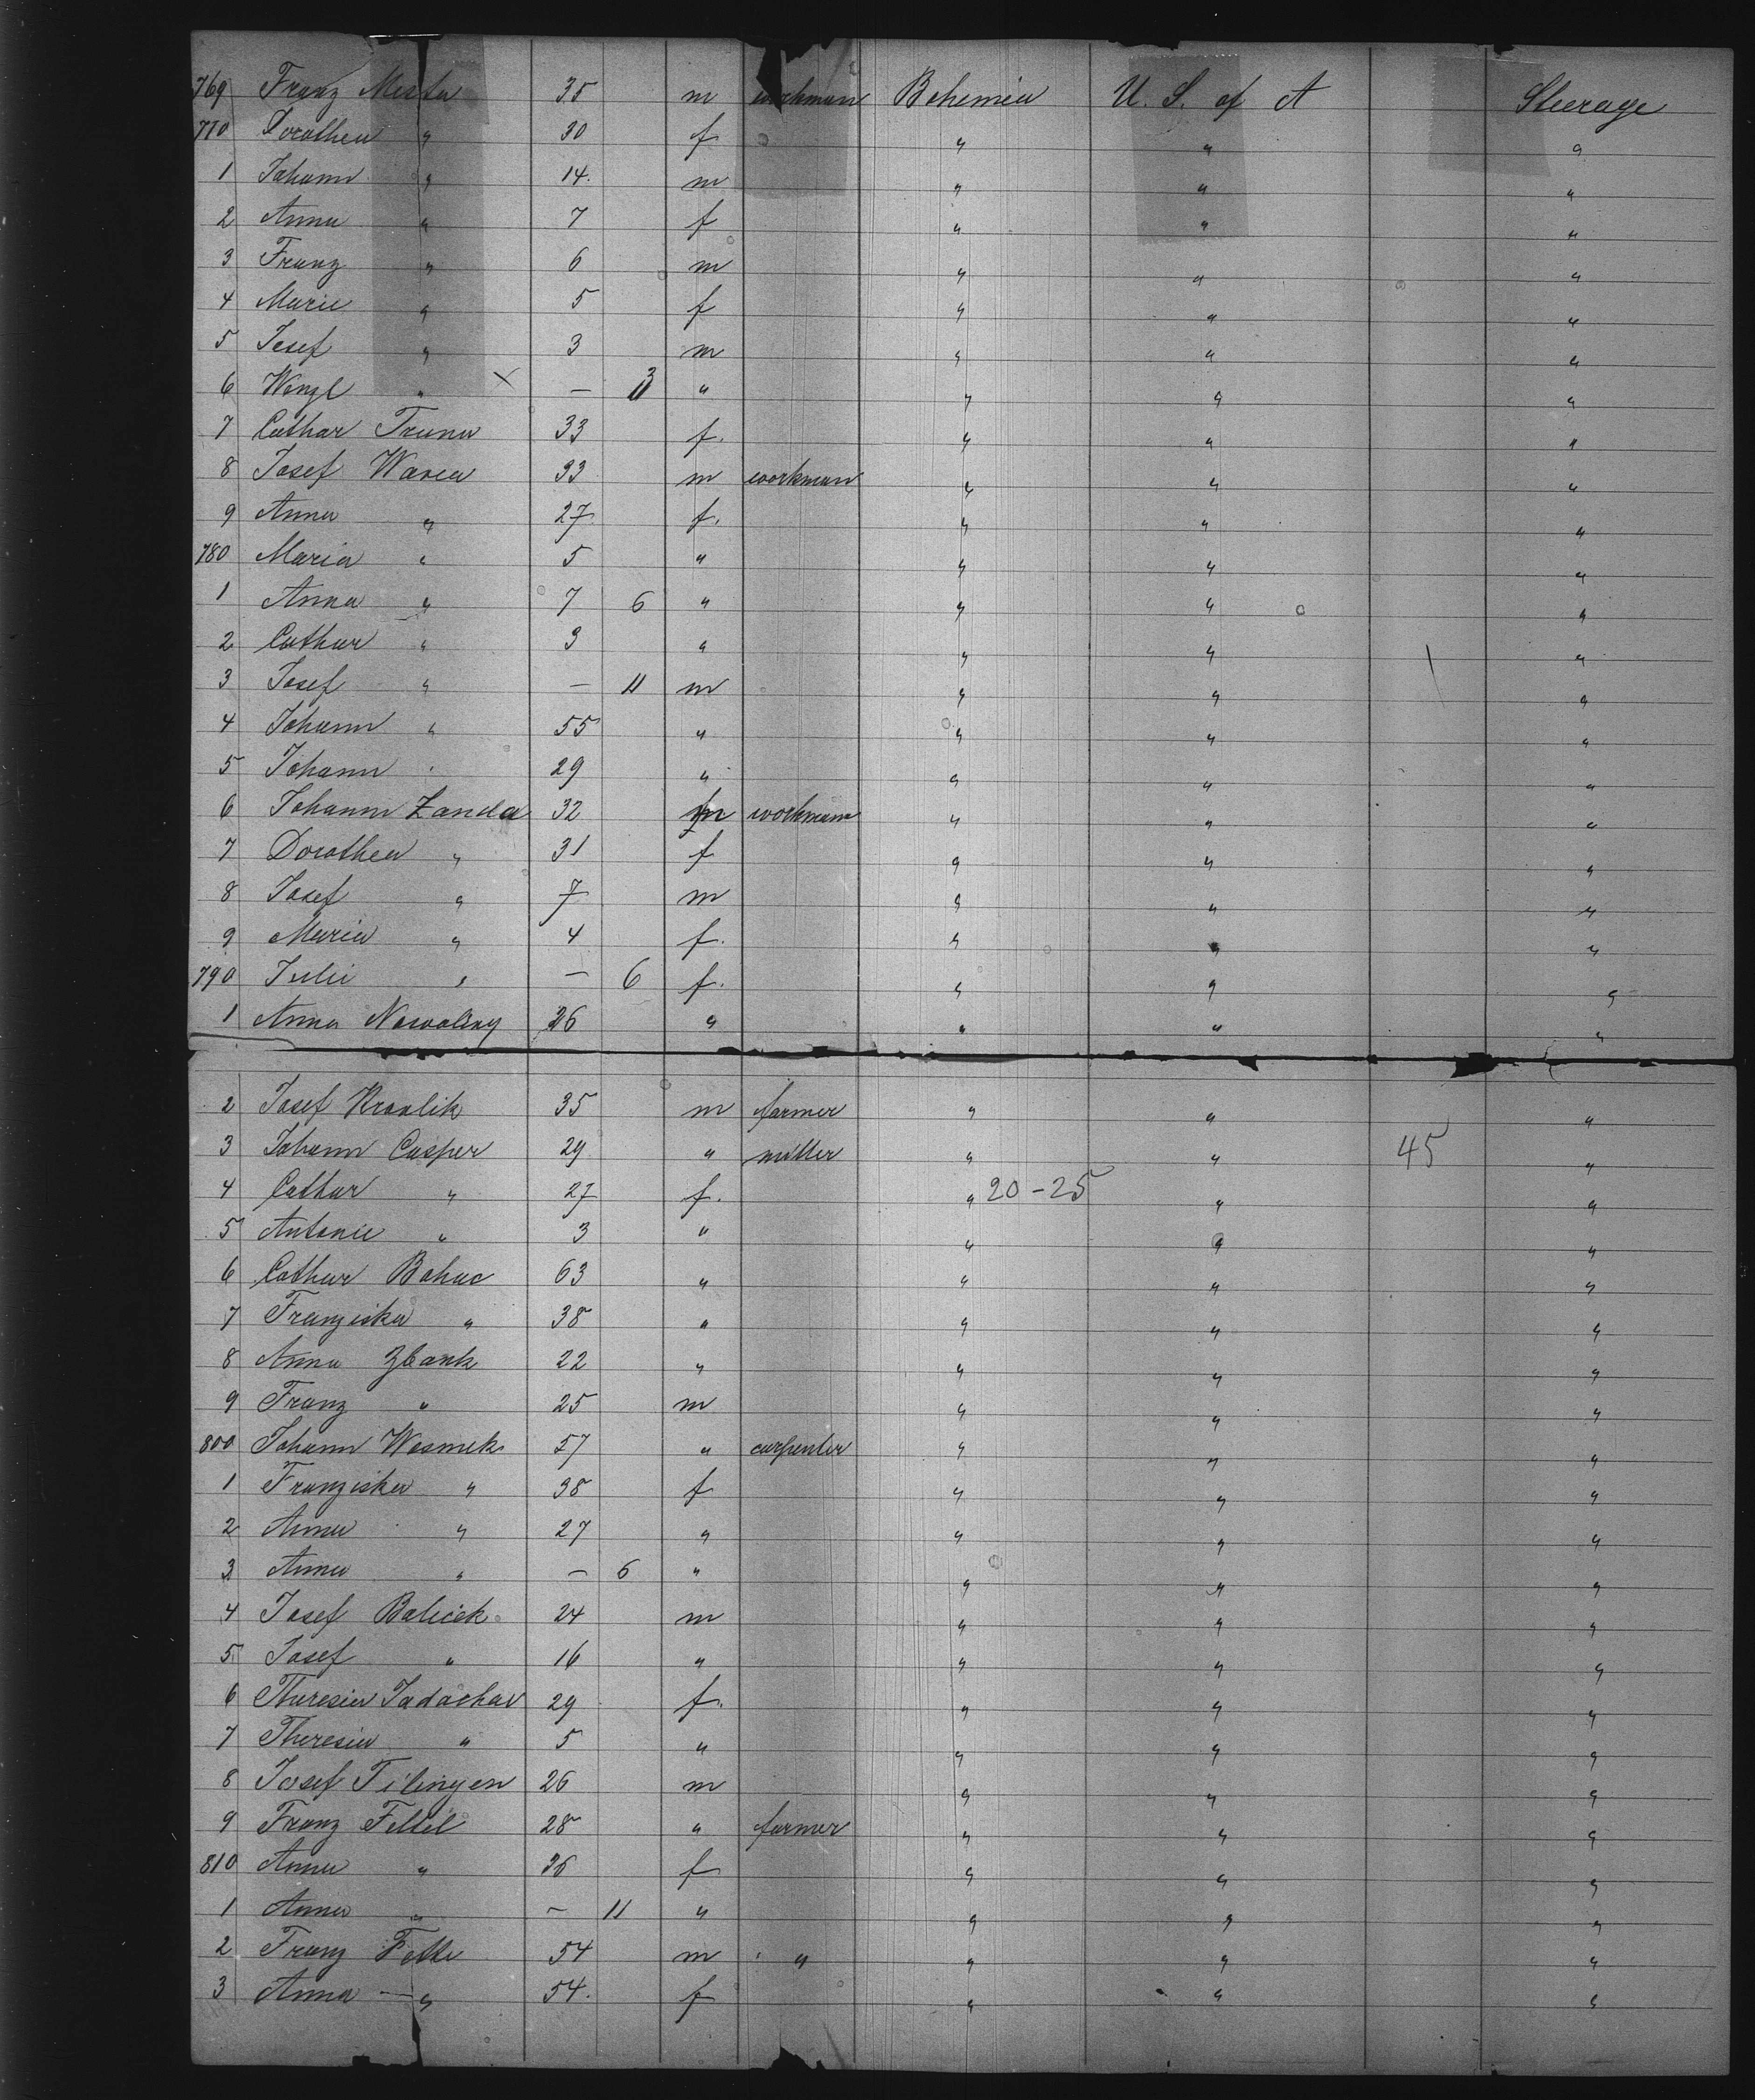 769 Franz Mesta 35 m workman Bohemia U. S. of A Steerage
770 Dorothea " 30 f " " "
1 Johann " 14. m " " "
2 Anna " 7 f " " "
3 Franz " 6 m " " "
4 Marie " 5 f " " "
5 Josef " 3 m " " "
6 Wenzl " X — 3 " " " "
7 Cathar Truna 33 f. " " "
8 Josef Warea 33 m workman " " "
9 Anna " 27 f. " " "
780 Maria " 5 " " " "
1 Anna " 7 6 " " " "
2 Cathar " 3 " " " "
3 Josef " — 11 m " " "
4 Johann " 55 " " " "
5 Johann " 29 " " " "
6 Johann Zanda 32 m workman " " "
7 Dorothea " 31 f " " "
8 Josef " 7 m " " "
9 Maria " 4 f. " " "
790 Julie " — 6 f. " " "
1 Anna 26 " " " "
2 Josef Kraalik 35 m farmer " " "
3 Johann Casper 29 " miller " " 45 "
4 Cathar " 27 f. " 20-25 " "
5 Antonie " 3 " " " "
6 Cathar Bohac 63 " " " "
7 Franziska " 38 " " " "
8 Anna Zbank 22 " " " "
9 Franz " 25 m " " "
800 Johann Wosmek 57 " carpenter " " "
1 Franziska " 38 f " " "
2 Anna " 27 " " " "
3 Anna " — 6 " " " "
4 Josef Balicek 24 m " " "
5 Josef " 16 " " " "
6 Theresia Jadachar 29 f. " " "
7 Theresia " 5 " " " "
8 Josef Tilingen 26 m " " "
9 Franz Fettel 28 " farmer " " "
810 Anna " 36 f " " "
1 Anna " — 11 " " " "
2 Franz Fette 54 m " " " "
3 Anna — " 54. f " " "